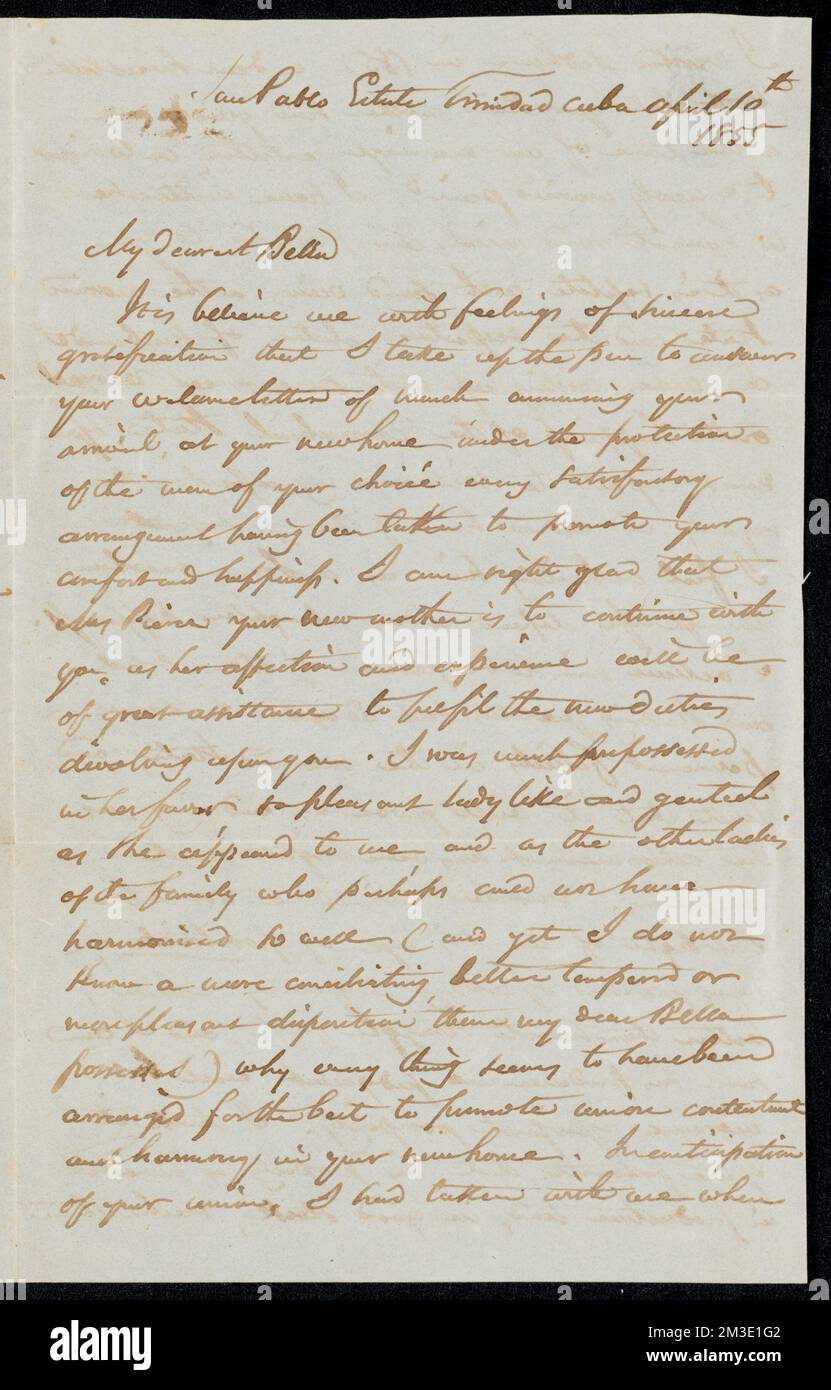 San Pablo Estate Trinidad Cuba April 10th
1855
My dearest Bella
It is believe me with feelings of sincere
gratification that I take up the pen to answer
your welcome letter of March announcing your
arrival at your new home under the protection
of the man of your choice every satisfactory
arrangement having been taken to promote your
comfort and happiness. I am right glad that
Mrs Pierce your new mother is to continue with
you, as her affection and experience will be
of great assistance to fulfil the new duties
devolving upon you. I was much prepossessed
in her favor, so pleasant lady like and genteel
as she appeared to me, and as the other ladies
of the family who perhaps could not have
harmonised so well (and yet I do not
know a more conciliating, better tempered or
more pleasant disposition, than my dear Bella
possesses) why every thing seems to have been
arranged for the best to promote union contentment
and harmony in your new home. In anticipation
of your union, I had taken with me when
alamy
alamy
Image ID: 2M3E1G2
www.alamy.com